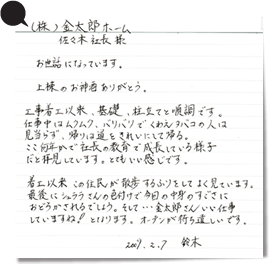 (株)金太郎ホーム
佐々木社長様
お世話になっています。
上棟のお神酒ありがとう。
工事着工以来、基礎、柱立てと順調です。
仕事中はムクムク、バリバリでくわえタバコの人は
見当らず、帰りは道をきれいにして帰る。
ここ何年かで社長の教育で成長している様子
だと拝見しています。とてもいい感じです。
着工以来この住民が散歩するふりをしてよく見ています。
最後にシュララさんの色付けで今回の中身のすごさに
おどろかされるでしょう。そして…金太郎さんいい仕事
していますね!となります。オープンが待ち遠しいです。
2009.2.7 鈴木